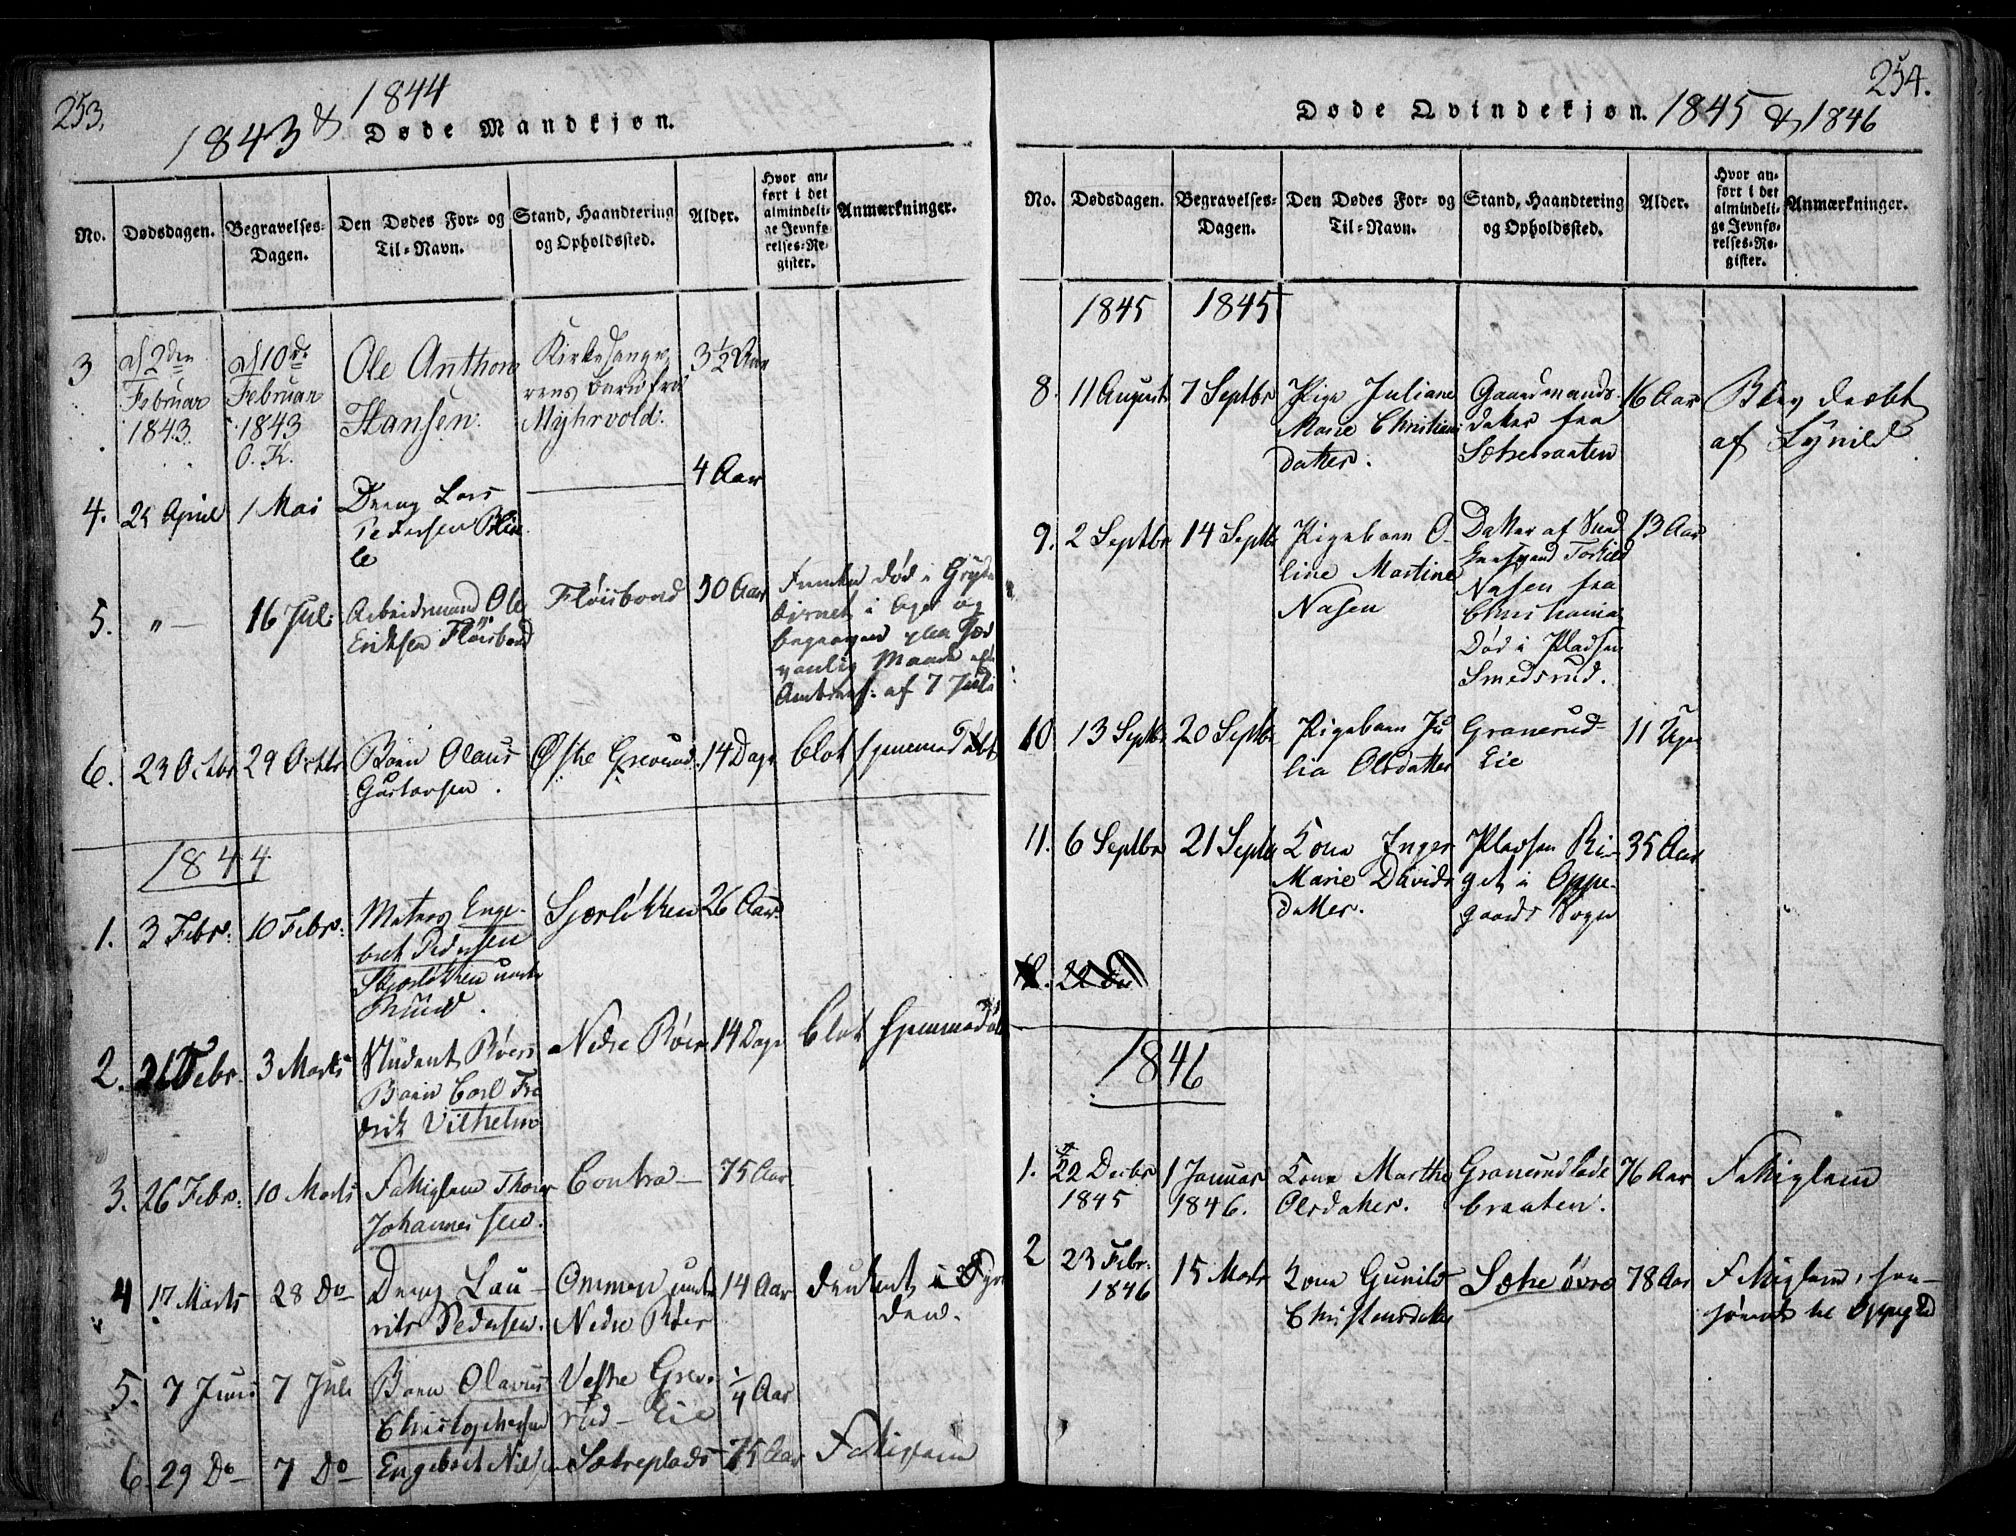 253.
1843 & 1844
Døde Mandkjøn.
No.
Dødsdagen.
Begravelses-
Dagen.
Den Dødes For- og
Til-Navn.
Stand, Haandtering
og Opholdssted.
Alder.
Hvor an-
ført i det
almindeli-
ge Jevnfø-
relses-Re-
gister.
Anmærkninger.
3
d 2den
Februar
1843.
d 10de
Februar
1843
O. K.
Ole Anthon
Hansen.
Kirkesange
rens Barn fra
Myhrvold.
3 1/2 Aar
4.
25 April
1 Mai
Dreng Lars
Pedersen
4 Aar
5.
"
16 Juli
Arbeidsmand Ole
Eriksen Fløisbond
Fløisbond
50 Aar
Funden død i
i
og
Maade
af 7 Juli
6.
23 Octbr
29 Octbr
Barn Olaus
Gustavsen.
Østre Greverud
14 Dage
blot hjemmedøbt
1844
1.
3 Febr:
10 Febr:
Matros Enge-
bret Pedersen
Skjærløkken under
Sjærløkken
26 Aar
2.
21 Febr.
3 Marts
Student Røers
Barn Carl Fre
drik Vilhelm
Nedre Røer
14 Dage
blot hjemmedøb
3.
26 Febr:
10 Marts
Fattiglem Thore
Johannessen.
Contra
75 Aar
4
17 Marts
28 Do
Dreng Lau-
rits Pedersen.
Ommen under
Nedre Røer
14 Aar
druknet i
den.
5.
7 Juni
7 Juli
Barn Olavus
Christophersen
Vestre Greve
rud - Eie
1/4 Aar
6.
29 Do
7 Do
Engebret Nilsen
Sætreplads
75 Aar
Fattiglem
254.
Døde Qvindekjøn. 1845 & 1846
No.
Dødsdagen.
Begravelses-
Dagen.
Den Dødes For- og
Til-Navn.
Stand, Haandtering
og Opholdssted.
Alder.
Hvor an-
ført i det
almindeli-
ge Jevnfø-
relses-Re-
gister.
Anmærkninger.
1845
1845
8.
11 August
7 Septbr
Pige Juliane
Marie Christians
datter.
Gaardmands-
datter fra
Sætrebraaten
16 Aar
Blev dræbt
af Lynild
9.
2 Septbr
14 Septb
Pigebarn O-
line Martine
Nasen
Datter af
Torkild
Nasen fra
Christiania
Død i Pladsen
Smedsrud.
13 Aar
10
13 Septb
20 Septb
Pigebarn Ju
lia Olsdatter
Granerud-
Eie
11 Uger
11.
6 Septbr
21 Septb
Kone Inger
Marie Davids
datter.
Pladsen Ri-
get i Oppe-
gaards Sogn
35 Aar
12. 22 Do
1846
1.
22 Decbr
1845
1 Januar
1846.
Kone Marthe
Olsdatter.
Granerudløkke
braaten.
76 Aar
Fattiglem
2
23 Febr:
1846
15 Marts
Kone Gunild
Christensdatter
Sætre øvre
78 Aar
Fattiglem, hen-
hørende til Oppegrd